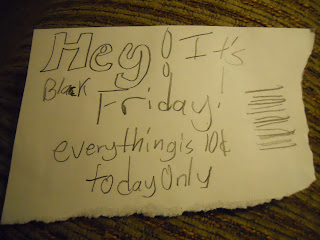 Hey! It's
Black
Friday!
everything is 10¢
today Only